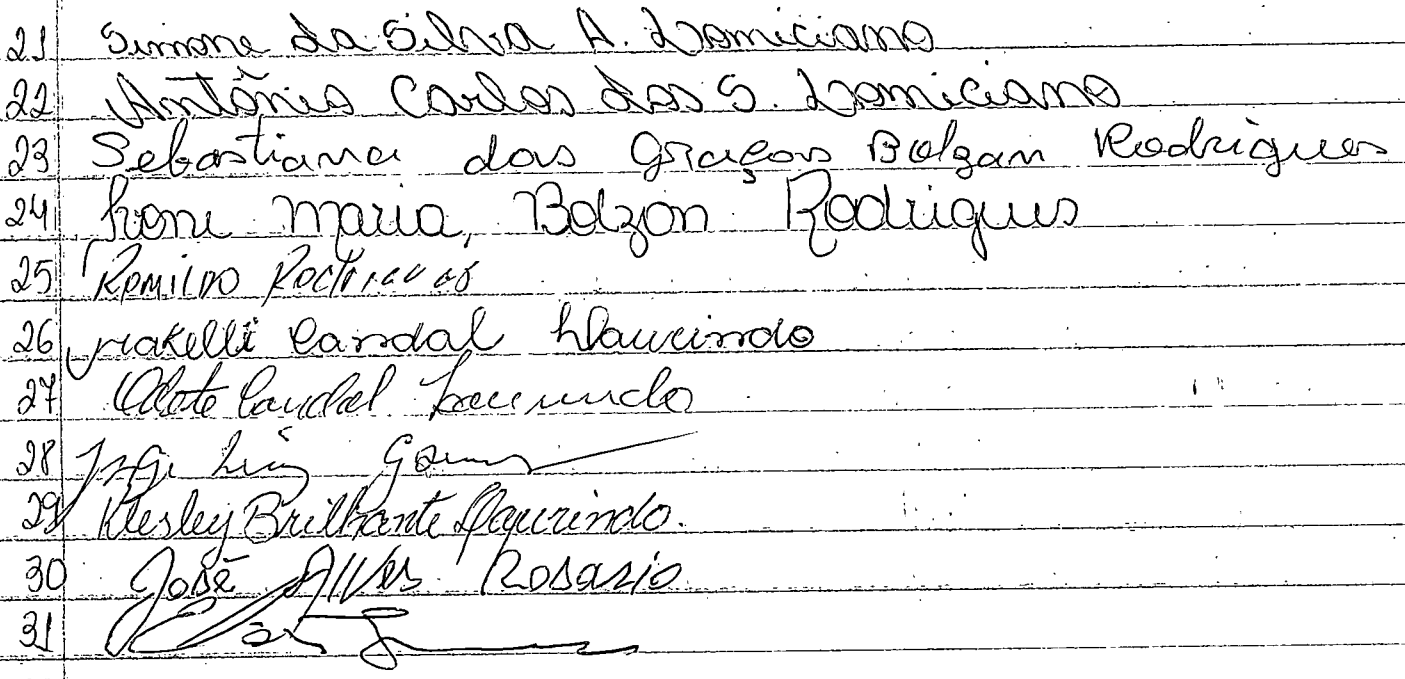 21 Simone da Silva A. Domiciano
22 Antônio Carlos dos S. Domiciano
23 Sebastiana das Graças Bolzan Rodrigues
24 Ivone Maria, Bolzon Rodrigues
25 Romildo Rodrigues
26 Candal Laurindo
27 Candal Laurindo
28 Jorge Luiz Gomes
29 Wesley Brilhante Laurindo.
30 José Alves Rosario
31